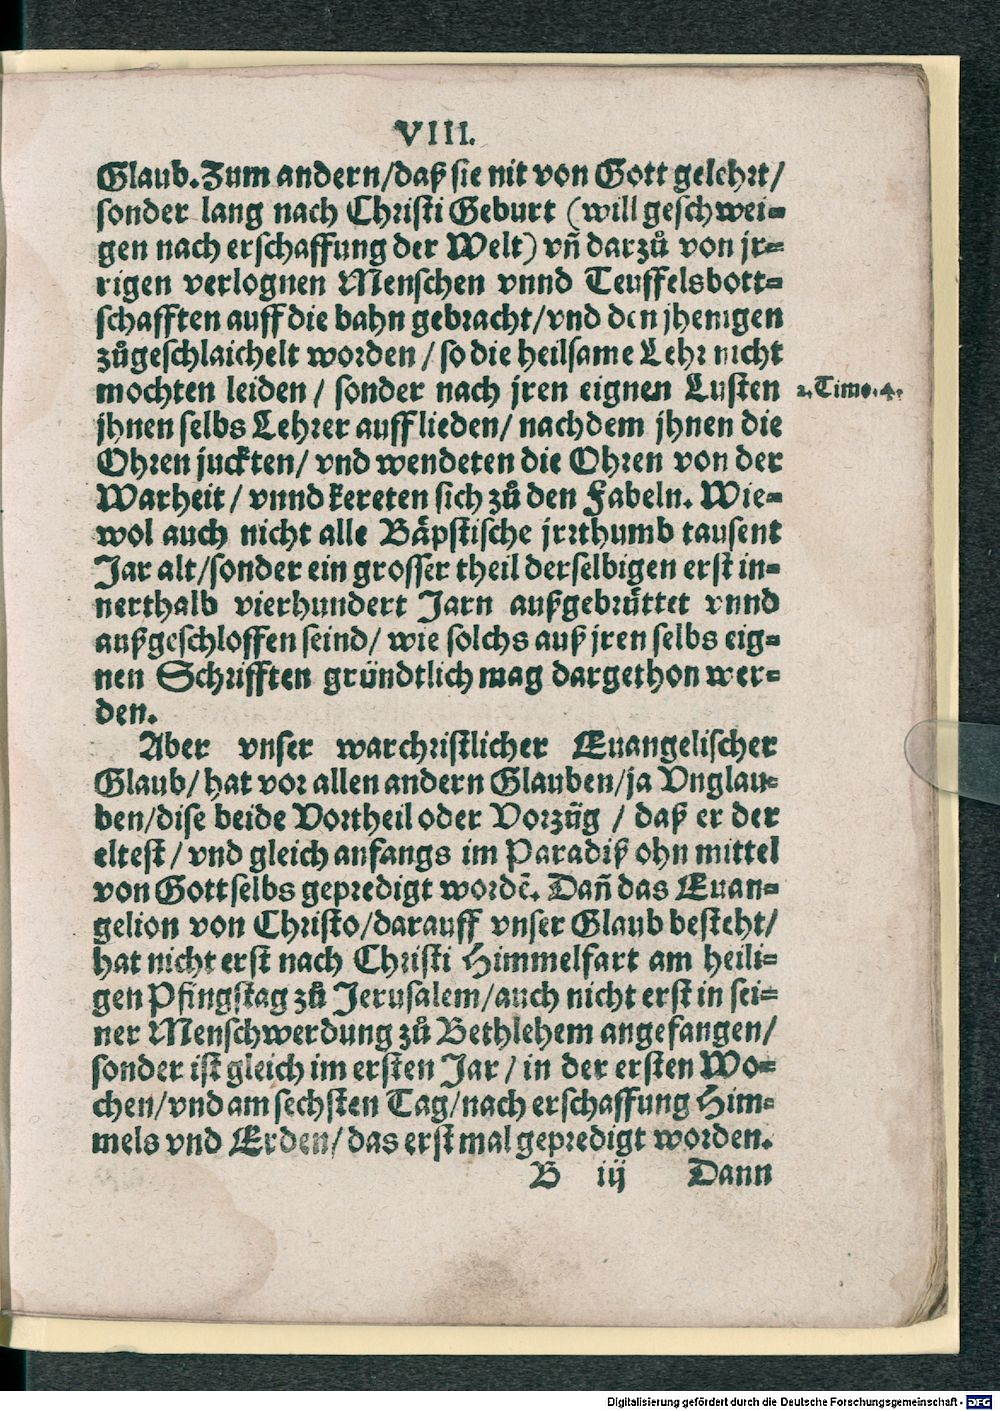 VIII.
Glaub. Zum andern/daß sie nit von Gott gelehrt/
sonder lang nach Christi Geburt (will geschwei⸗
gen nach erschaffung der Welt) vñ darzů von jr⸗
rigen verlognen Menschen vnnd Teuffelsbott⸗
schafften auff die bahn gebracht/vnd den jhenigen
zůgeschlaichelt worden/so die heilsame Lehr nicht
mochten leiden/sonder nach jren eignen Lusten
2. Timo. 4.
jhnen selbs Lehrer aufflieden/nachdem jhnen die
Ohren juckten/vnd wendeten die Ohren von der
Warheit/vnnd kereten sich zů den Fabeln. Wie⸗
wol auch nicht alle Båpstische jrrthumb tausent
Jar alt/sonder ein grosser theil derselbigen erst in⸗
nerthalb vierhundert Jarn außgebrüttet vnnd
außgeschloffen seind/wie solchs auß jren selbs eig⸗
nen Schrifften gründtlich mag dargethon wer⸗
den.
Aber vnser warchristlicher Euangelischer
Glaub/hat vor allen andern Glauben/ja Vnglau⸗
ben/dise beide Vortheil oder Vorzüg/daß er der
eltest/vnd gleich anfangs im Paradiß ohn mittel
von Gott selbs gepredigt wordẽ. Dañ das Euan⸗
gelion von Christo/darauff vnser Glaub besteht/
hat nicht erst nach Christi Himmelfart am heili⸗
gen Pfingstag zů Jerusalem/auch nicht erst in sei⸗
ner Menschwerdung zů Bethlehem angefangen/
sonder ist gleich im ersten Jar/in der ersten Wo⸗
chen/vnd am sechsten Tag/nach erschaffung Him⸗
mels vnd Erden/das erst mal gepredigt worden.
B iij Dann
Digitalisierung gefördert durch die Deutsche Forschungsgemeinschaft - DFG